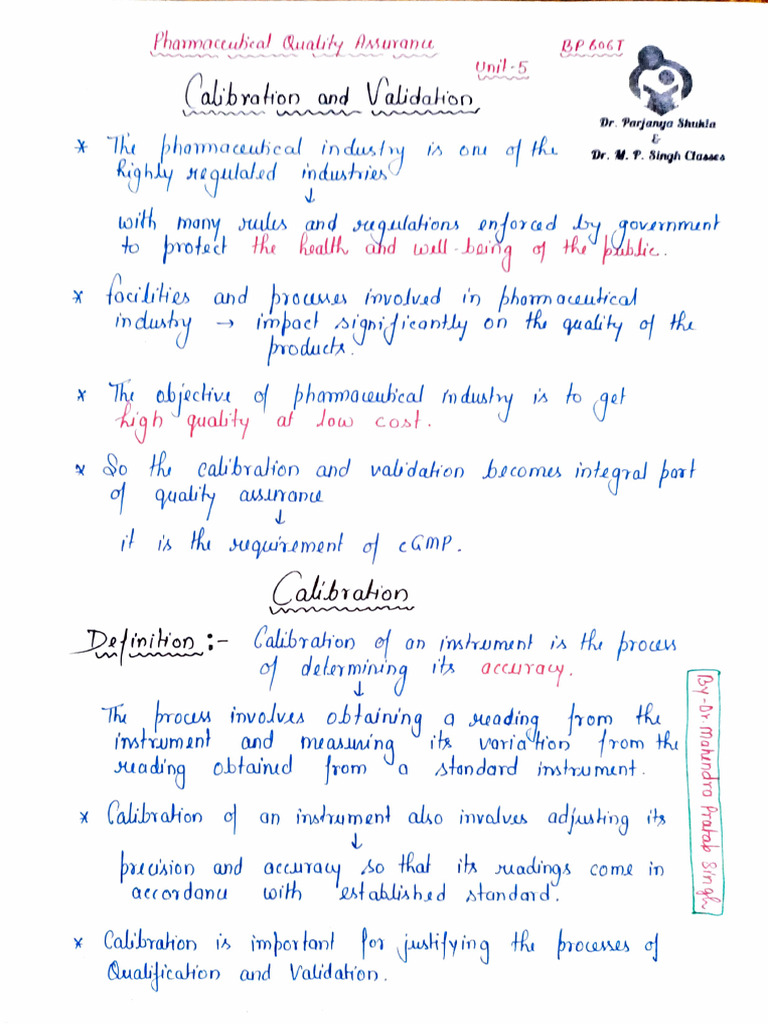 Pharmaceutical Quality Assurance
BP 606T
Unit-5
Calibration and Validation
Dr. Parjanya Shukla
&
Dr. M. P. Singh Classes
* The pharmaceutical industry is one of the
highly regulated industries
↓
with many rules and regulations enforced by government
to protect the health and well-being of the public.
* facilities and processes involved in pharmaceutical
industry → impact significantly on the quality of the
products.
* The objective of pharmaceutical industry is to get
high quality at low cost.
* So the calibration and validation becomes integral part
of quality assurance
↓
it is the requirement of cGMP.
Calibration
Definition :- Calibration of an instrument is the process
of determining its accuracy.
↓
The process involves obtaining a reading from the
instrument and measuring its variation from the
reading obtained from a standard instrument.
* Calibration of an instrument also involves adjusting its
↓
precision and accuracy so that its readings come in
accordance with established standard.
* Calibration is important for justifying the processes of
Qualification and Validation.
By-Dr. Mahendra Pratab Singh